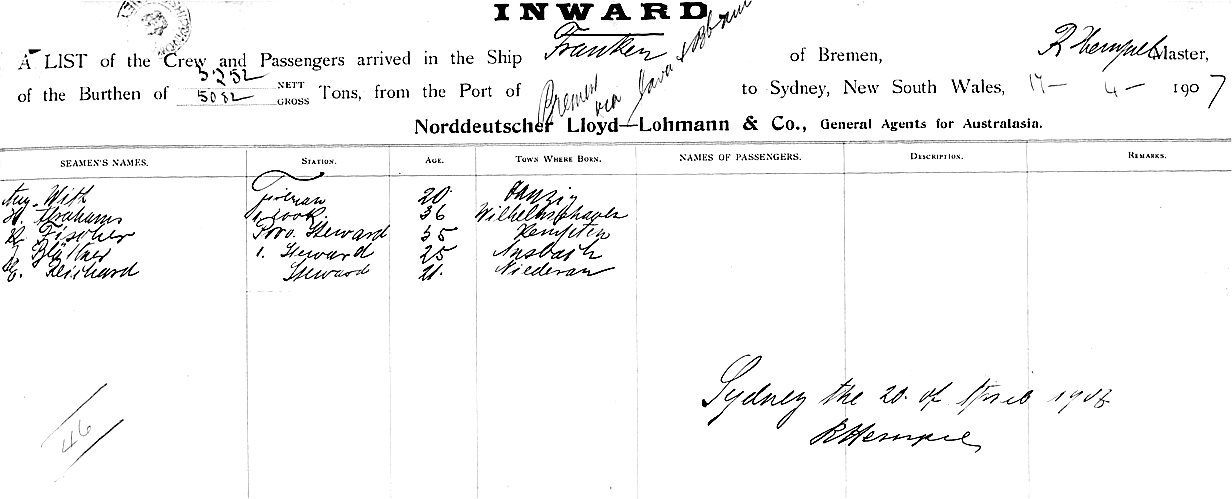 INWARD
A LIST of the Crew and Passengers arrived in the Ship Franken of Bremen, R Hempel Master,
of the Burthen of 3252 NETT 5032 GROSS Tons, from the Port of Bremen via Java & to Sydney, New South Wales, 17 - 4 - 1907
Norddeutscher Lloyd—Lohmann & Co., General Agents for Australasia.
SEAMEN'S NAMES. STATION. AGE. TOWN WHERE BORN. NAMES OF PASSENGERS. DESCRIPTION. REMARKS.
Aug. With 20 Danzig
H. Abrahams Cook. 36 Wilhelmshaven
Fischer Prov. Steward 35 Kempten
Blättner 1. Steward 25 Ansbach
Reichard Steward 21. Niederau
Sydney the 20. of April
RHempel
46